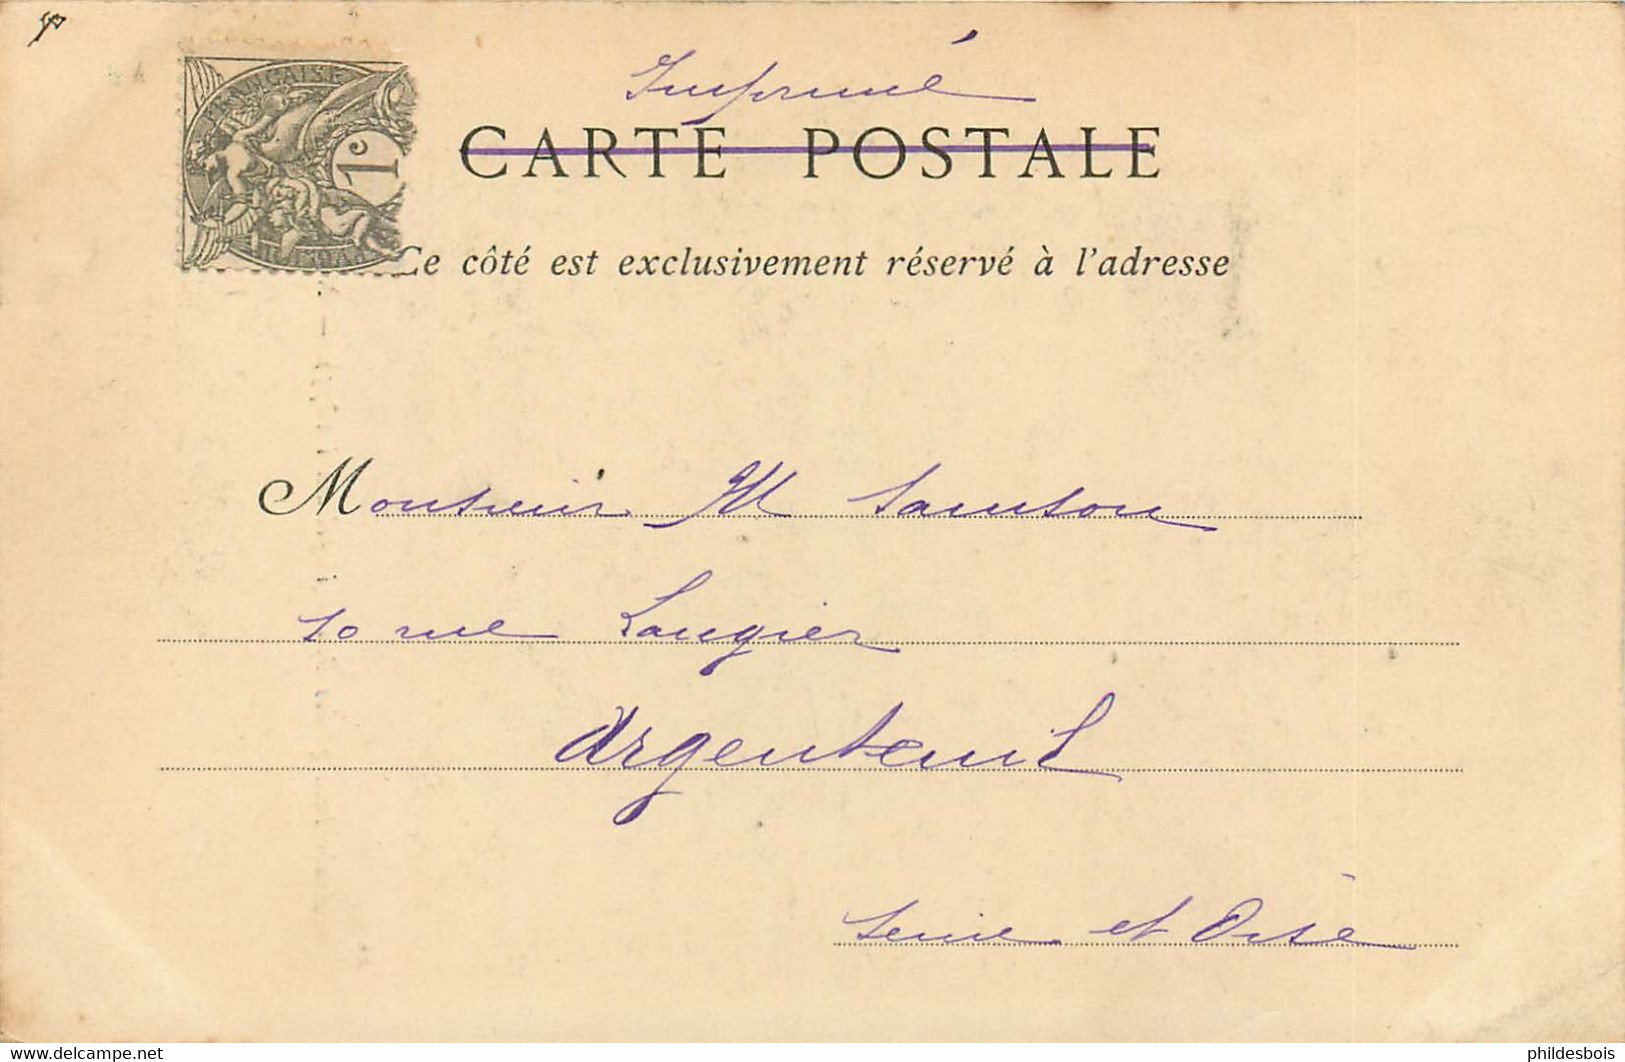 Imprimé
FRANÇAISE
1c
CARTE POSTALE
Ce côté est exclusivement réservé à l'adresse
Monsieur M Samson
10 rue Laugier
Argenteuil
Seine et Oise
www.delcampe.net
phildesbois